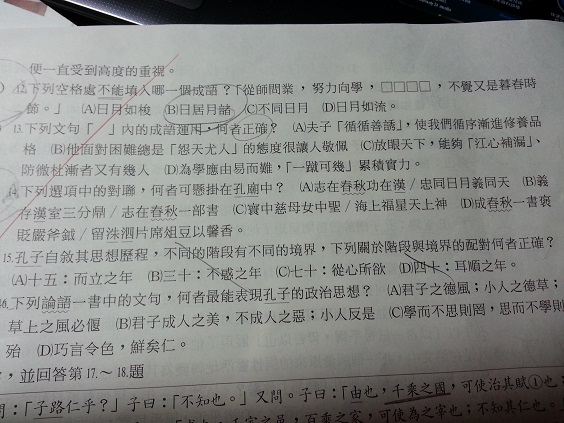 便一直受到高度的重視。
12.下列空格處不能填入哪一個成語?「從師問業,努力向學,□□□□,不覺又是暮春時
節。」 (A)日月如梭 (B)日居月諸 (C)不同日月 (D)日月如流。
13.下列文句「 」內的成語運用,何者正確? (A)夫子「循循善誘」,使我們循序漸進修養品
格 (B)他面對困難總是「怨天尤人」的態度很讓人敬佩 (C)放眼天下,能夠「江心補漏」、
防微杜漸者又有幾人 (D)為學應由易而難,「一蹴可幾」累積實力。
14.下列選項中的對聯,何者可懸掛在孔廟中? (A)志在春秋功在漢/忠同日月義同天 (B)義
存漢室三分鼎/志在春秋一部書 (C)寰中慈母女中聖/海上福星天上神 (D)成春秋一書褒
貶嚴斧鉞/留洙泗片席俎豆以馨香。
15.孔子自敘其思想歷程,不同的階段有不同的境界,下列關於階段與境界的配對何者正確?
(A)十五:而立之年 (B)三十:不惑之年 (C)七十:從心所欲 (D)四十:耳順之年。
16.下列論語一書中的文句,何者最能表現孔子的政治思想? (A)君子之德風;小人之德草;
草上之風必偃 (B)君子成人之美,不成人之惡;小人反是 (C)學而不思則罔,思而不學則
殆 (D)巧言令色,鮮矣仁。
,並回答第17.~18.題
問:「子路仁乎?」子曰:「不知也。」又問。子曰:「由也,千乘之國,可使治其賦①也;
室之邑,百乘之家,可使為之宰也;不知其仁也。」